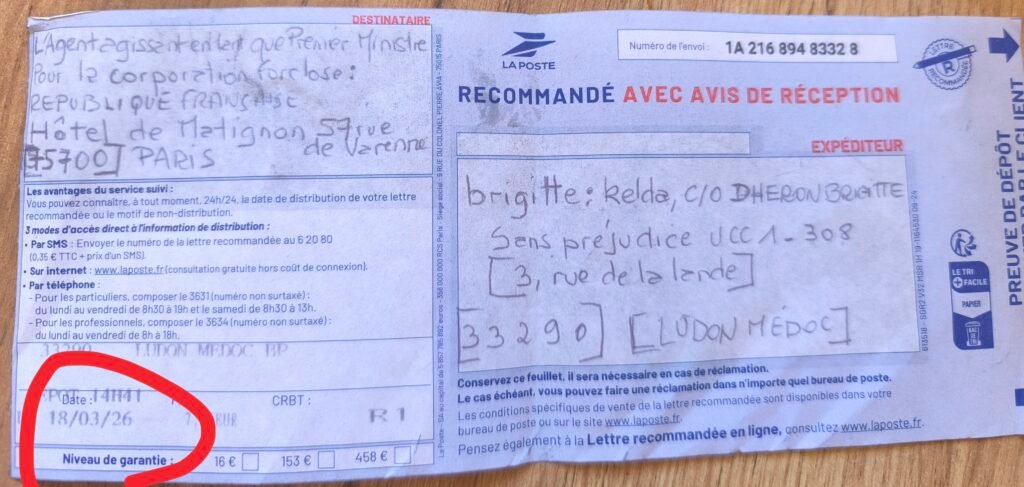 DESTINATAIRE
L'Agent agissant en tant que Premier Ministre
Pour la corporation forclose :
REPUBLIQUE FRANÇAISE
Hôtel de Matignon 57 rue
de Varenne
[75700] PARIS
Les avantages du service suivi :
Vous pouvez connaître, à tout moment, 24h/24, la date de distribution de votre lettre
recommandée ou le motif de non-distribution.
3 modes d'accès direct à l'information de distribution :
• Par SMS : Envoyer le numéro de la lettre recommandée au 6 20 80
(0,35 € TTC + prix d'un SMS).
• Sur internet : www.laposte.fr (consultation gratuite hors coût de connexion).
• Par téléphone :
- Pour les particuliers, composer le 3631 (numéro non surtaxé) :
du lundi au vendredi de 8h30 à 19h et le samedi de 8h30 à 13h.
- Pour les professionnels, composer le 3634 (numéro non surtaxé) :
du lundi au vendredi de 8h à 18h.
33290 LUDON MEDOC BP
14H41
Date :
CRBT :
18/03/26
R1
Niveau de garantie :
16 €
153 €
458 €
La Poste - SA au capital de 5 857 785 892 euros - 356 000 000 RCS Paris - Siège social : 9 RUE DU COLONEL PIERRE AVIA - 75015 PARIS
LA POSTE
Numéro de l'envoi : 1A 216 894 8332 8
LETTRE
R
RECOMMANDÉE
RECOMMANDÉ AVEC AVIS DE RÉCEPTION
EXPÉDITEUR
brigitte : kelda, C/O DHERON BRIGITTE
Sens préjudice UCC 1-308
[3, rue de la lande]
[33290] [LUDON MÉDOC]
Conservez ce feuillet, il sera nécessaire en cas de réclamation.
Le cas échéant, vous pouvez faire une réclamation dans n'importe quel bureau de poste.
Les conditions spécifiques de vente de la lettre recommandée sont disponibles dans votre
bureau de poste ou sur le site www.laposte.fr.
Pensez également à la Lettre recommandée en ligne, consultez www.laposte.fr.
LE TRI
+ FACILE
PAPIER
BAC DE TRI
PREUVE DE DÉPÔT
CLIENT